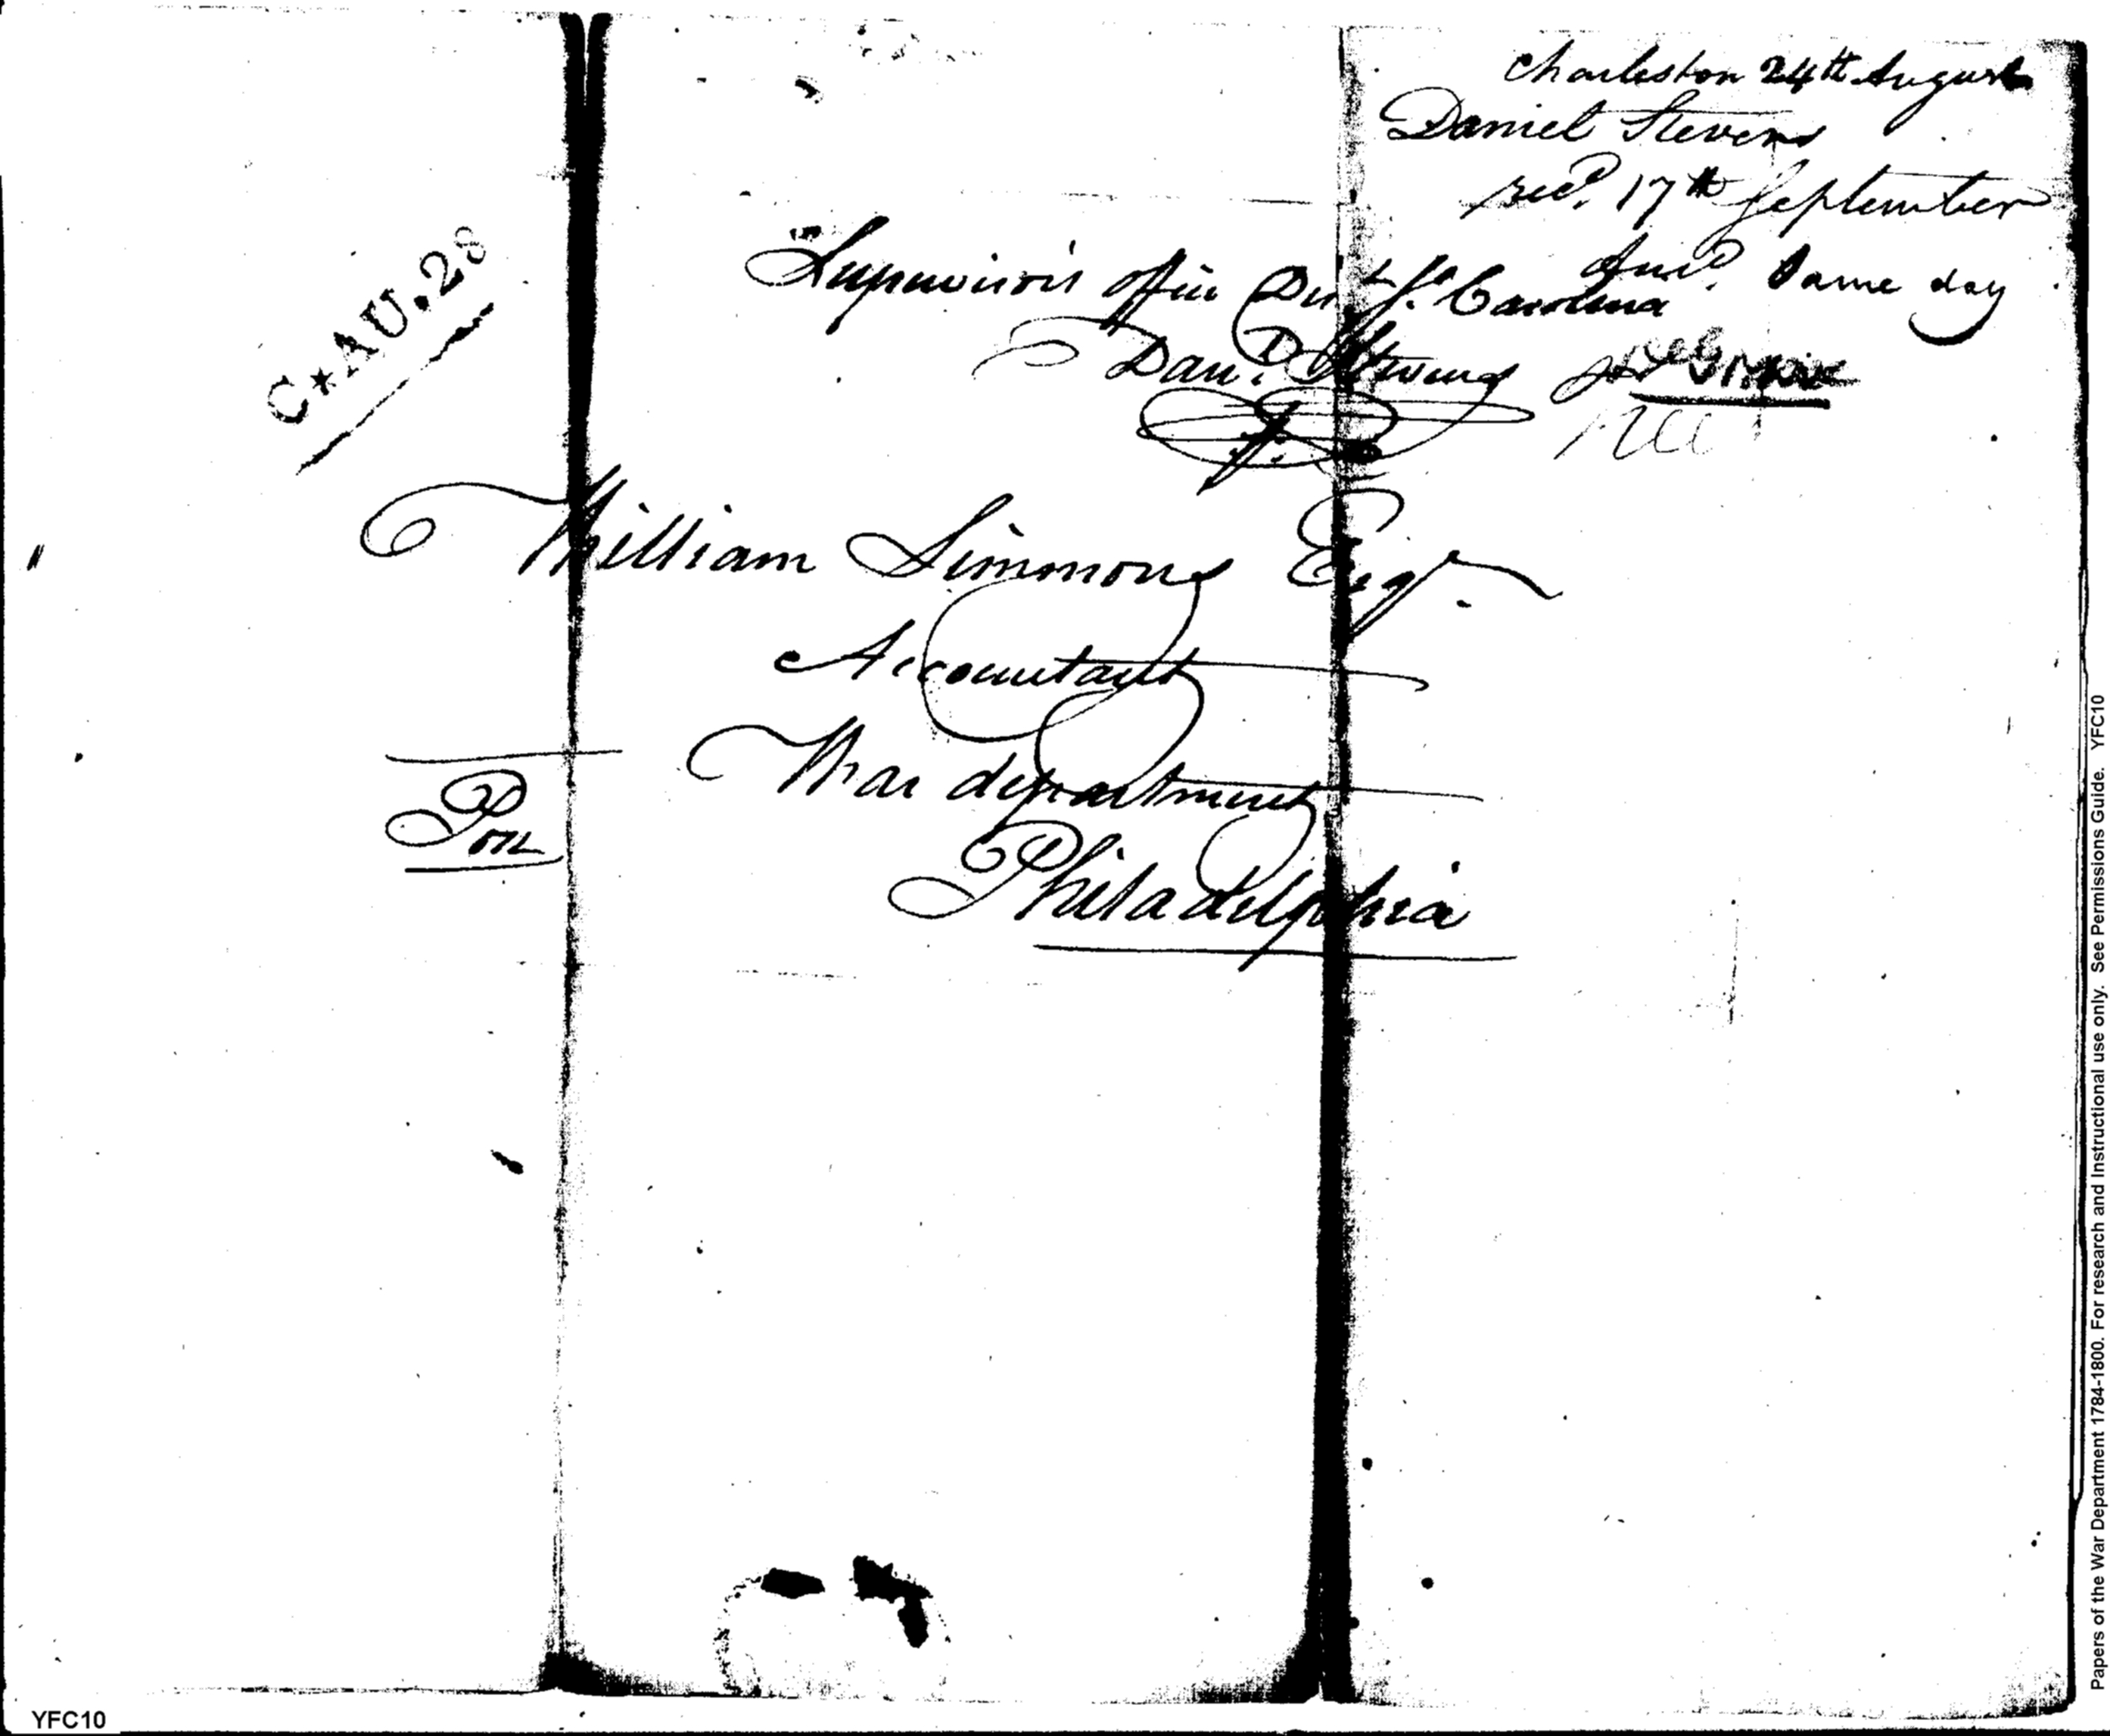 Charleston 24th August
Daniel Stevens
recd. 17th September
Ansd. Same day
C★AU.28
Supervisor's office Dist. So. Carolina
Danl. Stevens
William Simmons Esqr.
Accountant
War department
Philadelphia
Papers of the War Department 1784-1800. For research and Instructional use only. See Permissions Guide. YFC10
YFC10